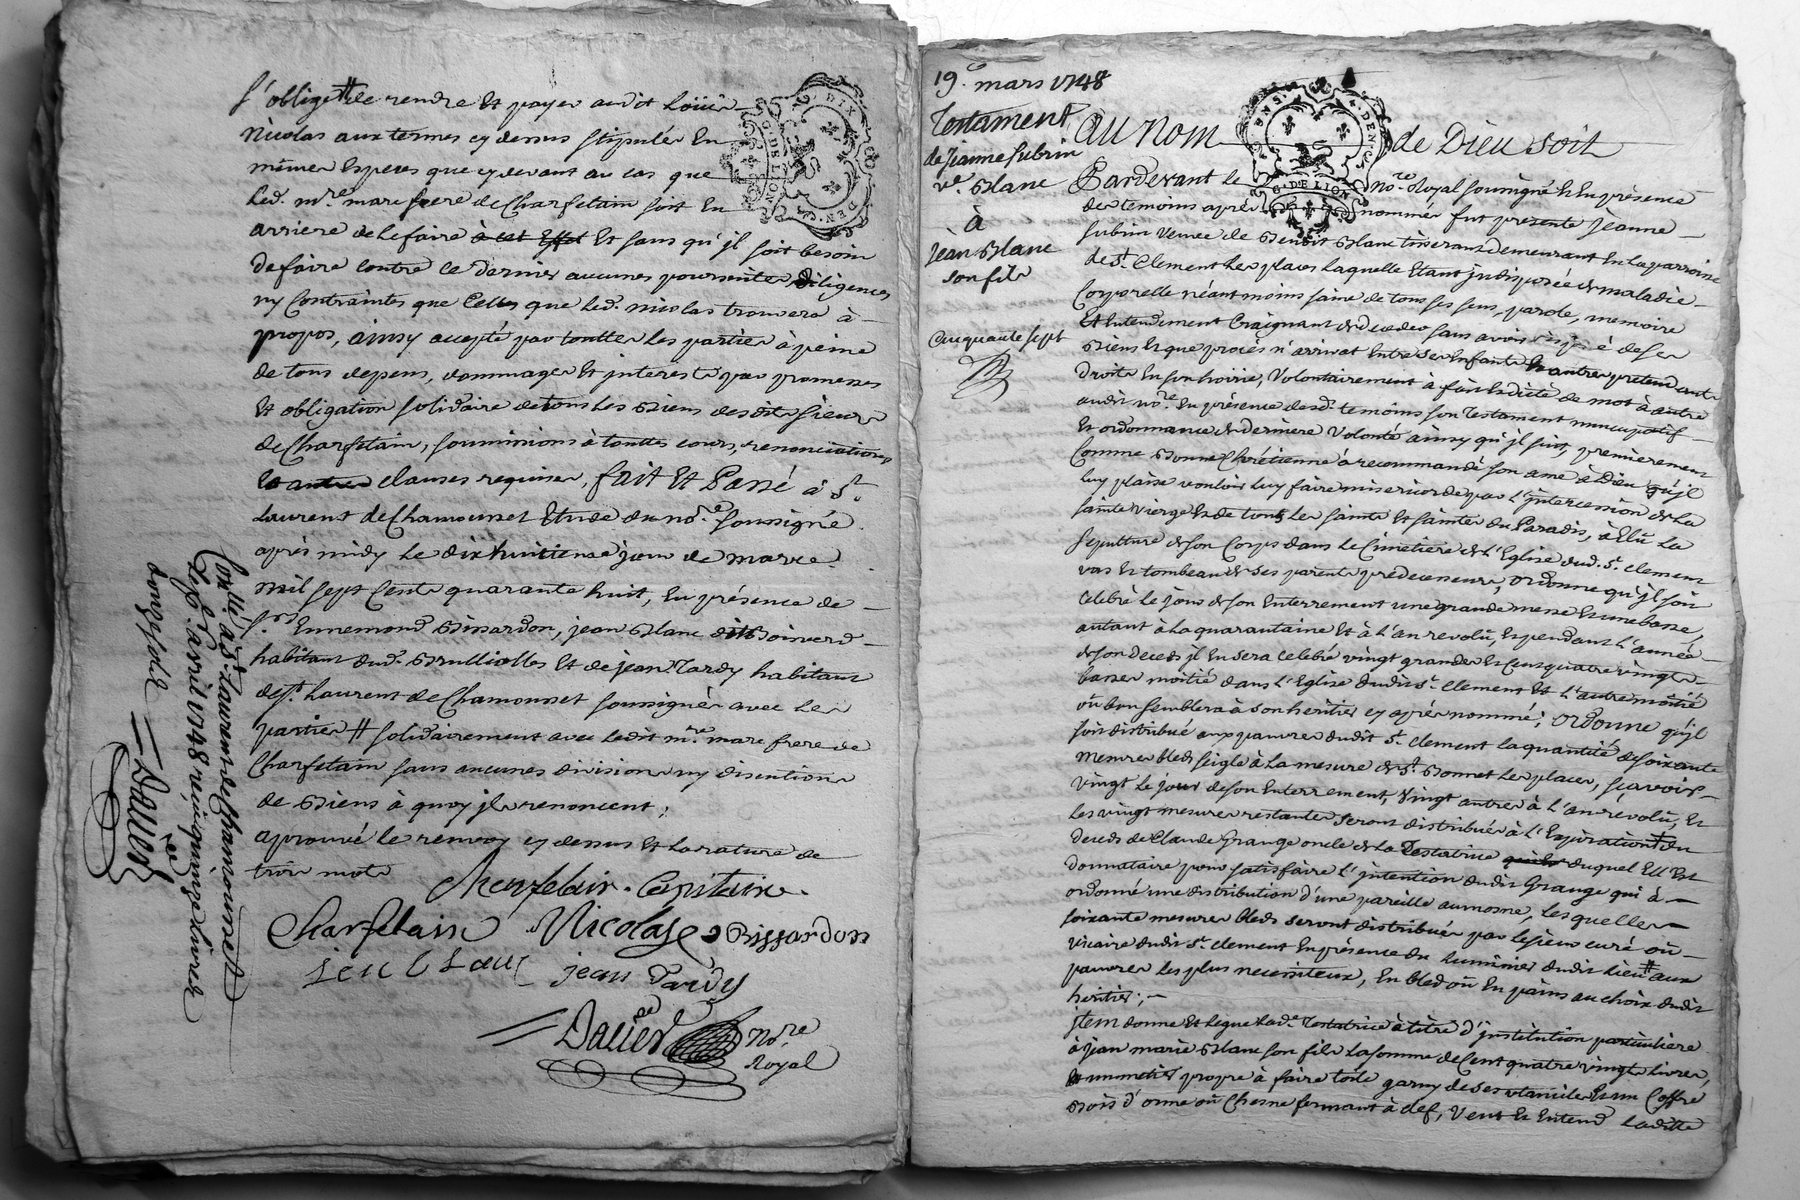 s'oblige # de rendre et payer audit Loüis
Nicolas aux termes cy dessus stipulés En
mêmes Especes que cy devant au cas que
led. mre marc frere de Charfetain soit En
arriere de le faire à cet Effet Et sans qu'jl soit besoin
de faire contre ce dernier aucunes poursuites, diligences
ny Contraintes que Celles que led. nicolas trouvera à
propos, ainsy accepté par touttes les parties à peine
de tous depens, dommages Et jnterests par promesses
Et obligation solidaire de tous les Biens desdits sieurs
de Charfetain, soumissions à touttes cours, renonciations
Et autres clauses requises, fait Et Passé à St.
Laurent de Chamousset Etude du nore. soussigné
après midy le dixhuitieme jour de mars
mil sept Cents quarante huit, En présence de
sr. Ennemond Bissardon, jean Blanc dit Boinverd
habitant dud. Brullioles Et de jean Tardy habitant
de St. Laurent de Chamousset soussignés avec les
parties # solidairement avec ledit mre. marc frere de
Charfetain sans aucunes division ny discution
de Biens à quoy jls renoncent;
aprouvé le renvoy cy dessus Et la rature de
trois mots
Charfetain Nicolas Bissardon
jean Blanc jean Tardy
Dalier Nore.
Royal
Conllé. à St. Laurent de Chamousset
le avril 1748 reçu quinze livres
douze sols
Dalier
19e. mars 1748
Testament
de Jeanne Subrin
ve. Blanc
à
Jean Blanc
son fils
Cinquante sept
Au Nom de Dieu soit
G. DE LION
Pardevant le nore. Royal soussigné Et En présence
des temoins après nommés fut presente Jeanne
Subrin veuve de Benoit Blanc tisserant demeurant En la parroisse
de St. Clement les places laquelle Etant jndisposée de maladie
Corporelle néantmoins saine de tous ses sens, parole, memoire
Et Entendement Craignant de deceder sans avoir disposé de ses
Biens Et que procés n'arrivat Entre ses Enfants Et autres pretendants
droits En son hoirie, Volontairement à fait Et dicté de mot à autre
audit nore. En présence desd. temoins son Testament nuncupatif
Et ordonnance de derniere Volonté ainsy qu'jl suit, premierement
Comme Bonne Chrétienne à recommandé son ame à Dieu qu'jl
luy plaise vouloir luy faire misericorde par l'jntercession de la
sainte vierge Et de tous les saints Et saintes du Paradis, à Elû la
sepulture de son Corps dans le Cimetiere de l'Eglise dud. St. Clement
vas Et tombeau de ses parents prédecesseurs, ordonne qu'jl soit
Celebré le jour de son Enterrement une grande messe Et une basse,
autant à la quarantaine Et à l'an revolû, Et pendant l'année
de son deceds jl En sera celebré vingt grandes Et Cent quatre vingts
basses moitié dans l'Eglise dudit St. Clement Et l'autre moitié
où bon semblera à son heritier cy après nommé; ordonne qu'jl
soit distribué aux pauvres dudit St. Clement la quantité de soixante
mesures bled seigle à la mesure de St. Bonnet les places, sçavoir
vingt le jour de son Enterrement, Vingt autres à l'an révolû, Et
les vingt mesures restantes seront distribuées à l'Expiration du
deceds de Claude Grange oncle de la Testatrice duquel Ell' Est
donnataire pour satisfaire l'jntention dudit Grange qui à
ordonné une distribution d'une pareille aumosne, lesquelles
soixante mesures bleds seront distribuées par le sieur curé où
vicaire dudit St. Clement En présence du luminier dudit lieu # aux
pauvres les plus necessiteux, En bled où En pains au choix dudit
heritier;
jtem donne Et legue lade. Testatrice à titre d'jnstitution particuliere
à jean marie Blanc son fils la somme de Cent quatre vingts livres,
Et un metier propre à faire toile garny de ses utanciles Et un Coffre
Bois d'orme où Chesne fermant à clef, Veut Et Entend laditte